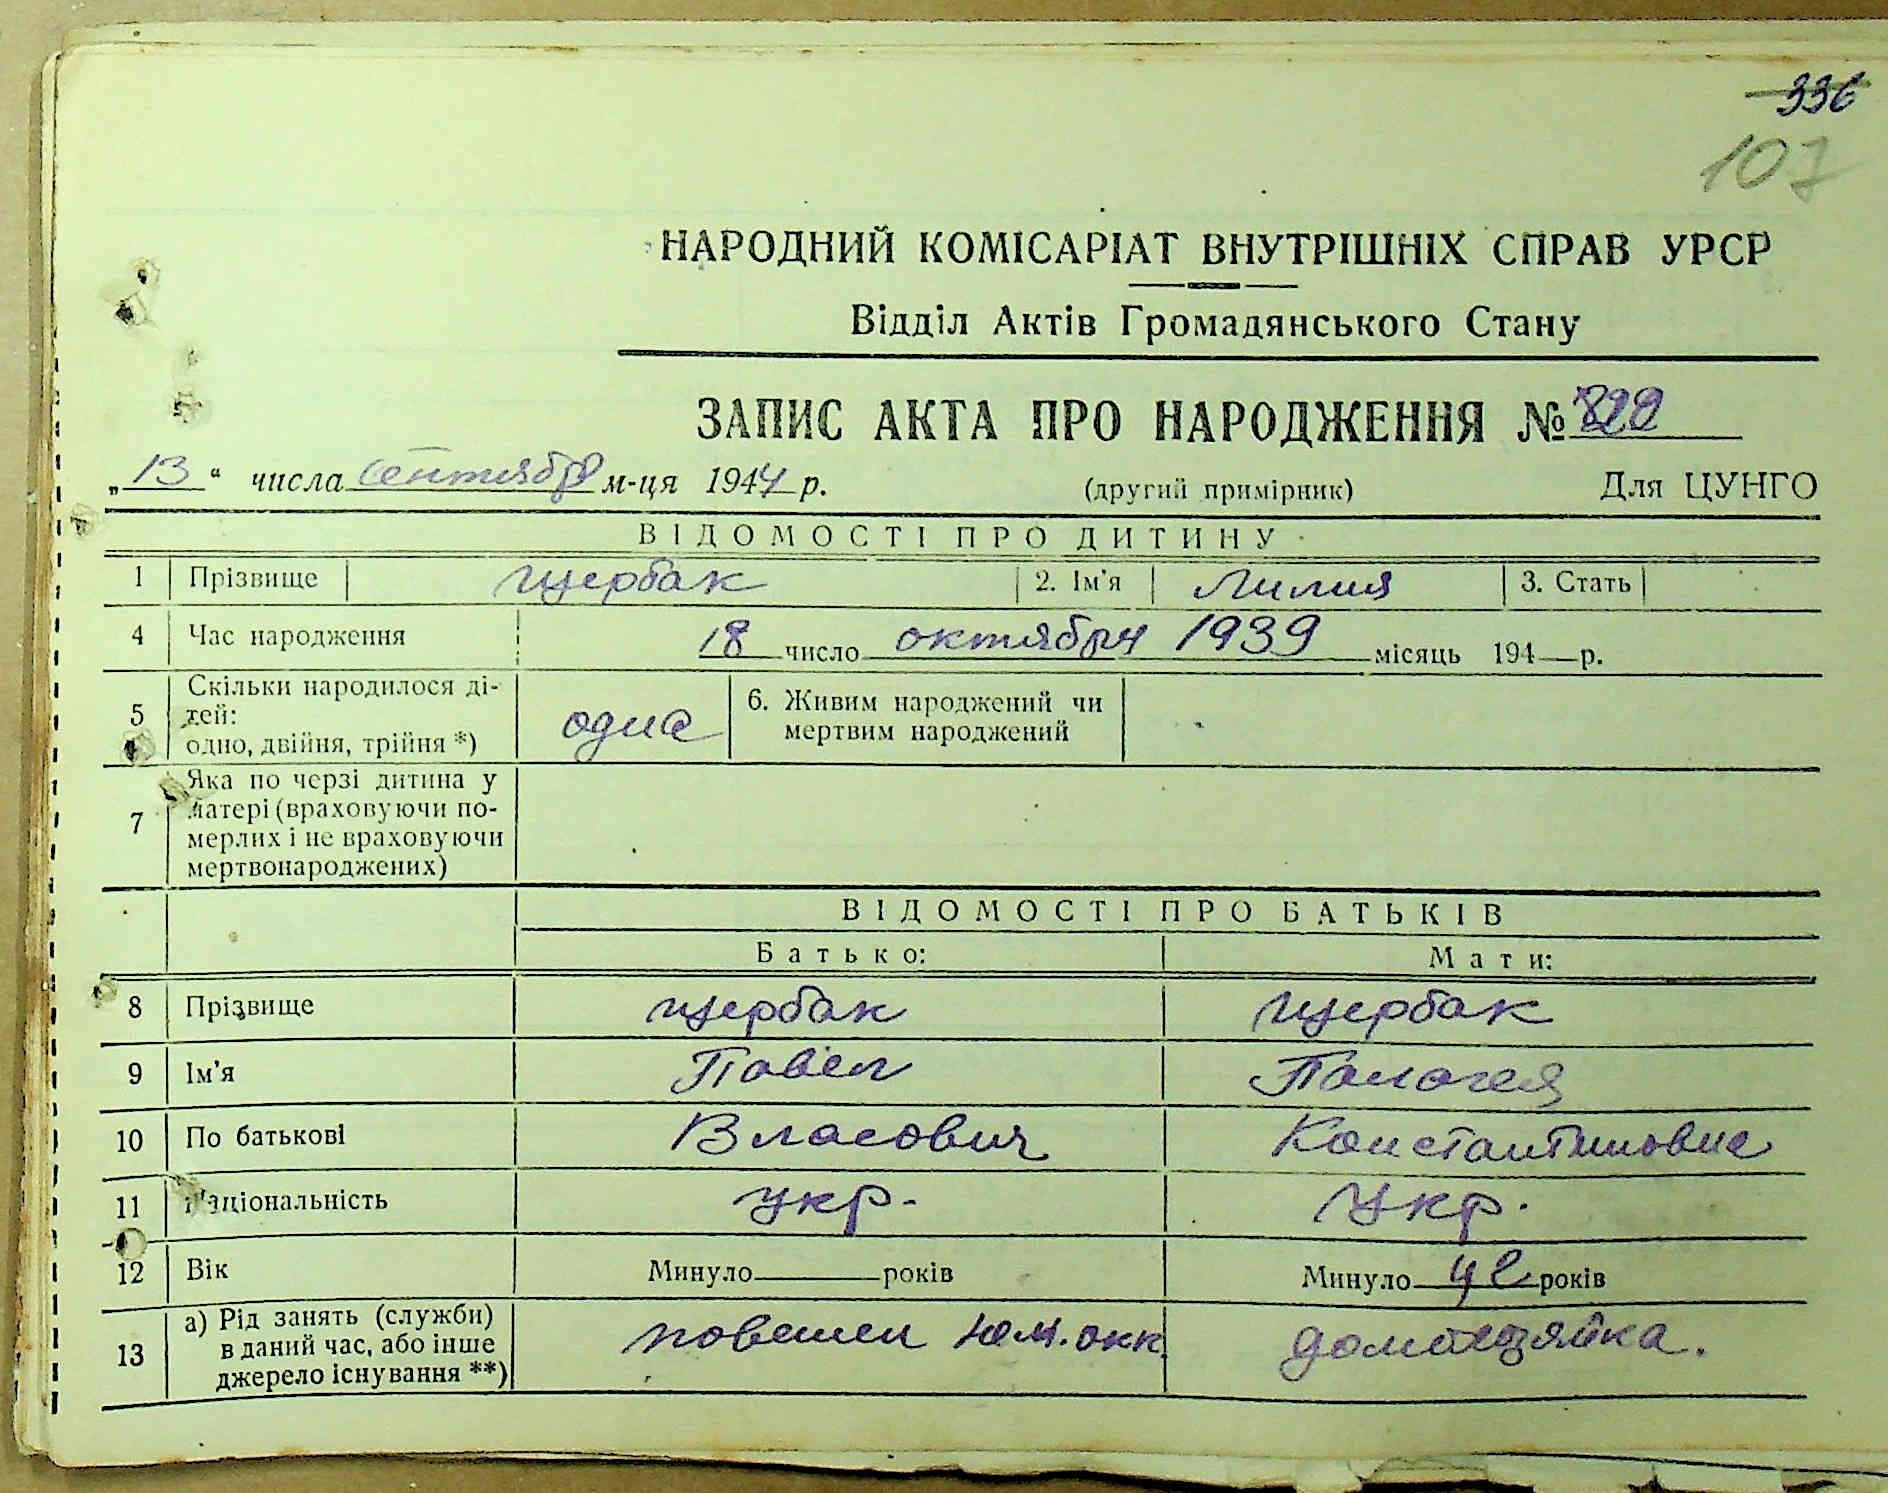 336
107
НАРОДНИЙ КОМІСАРІАТ ВНУТРІШНІХ СПРАВ УРСР
Відділ Актів Громадянського Стану
ЗАПИС АКТА ПРО НАРОДЖЕННЯ № 822
„13“ числа сентября м-ця 1944 р. (другий примірник) Для ЦУНГО
ВІДОМОСТІ ПРО ДИТИНУ
1 Прізвище Щербак 2. Ім'я Лилия 3. Стать
4 Час народження 18 число октября 1939 місяць 194 р.
5 Скільки народилося ді-
тей:
одно, двійня, трійня *) одна 6. Живим народжений чи
мертвим народжений
7 Яка по черзі дитина у
матері (враховуючи по-
мерлих і не враховуючи
мертвонароджених)
ВІДОМОСТІ ПРО БАТЬКІВ
Батько: Мати:
8 Прізвище Щербак Щербак
9 Ім'я Павел Палагея
10 По батькові Власович Константиновна
11 Національність укр. укр.
12 Вік Минуло років Минуло 42 років
13 а) Рід занять (служби)
в даний час, або інше
джерело існування **) повешен нем. окк. домохозяйка.